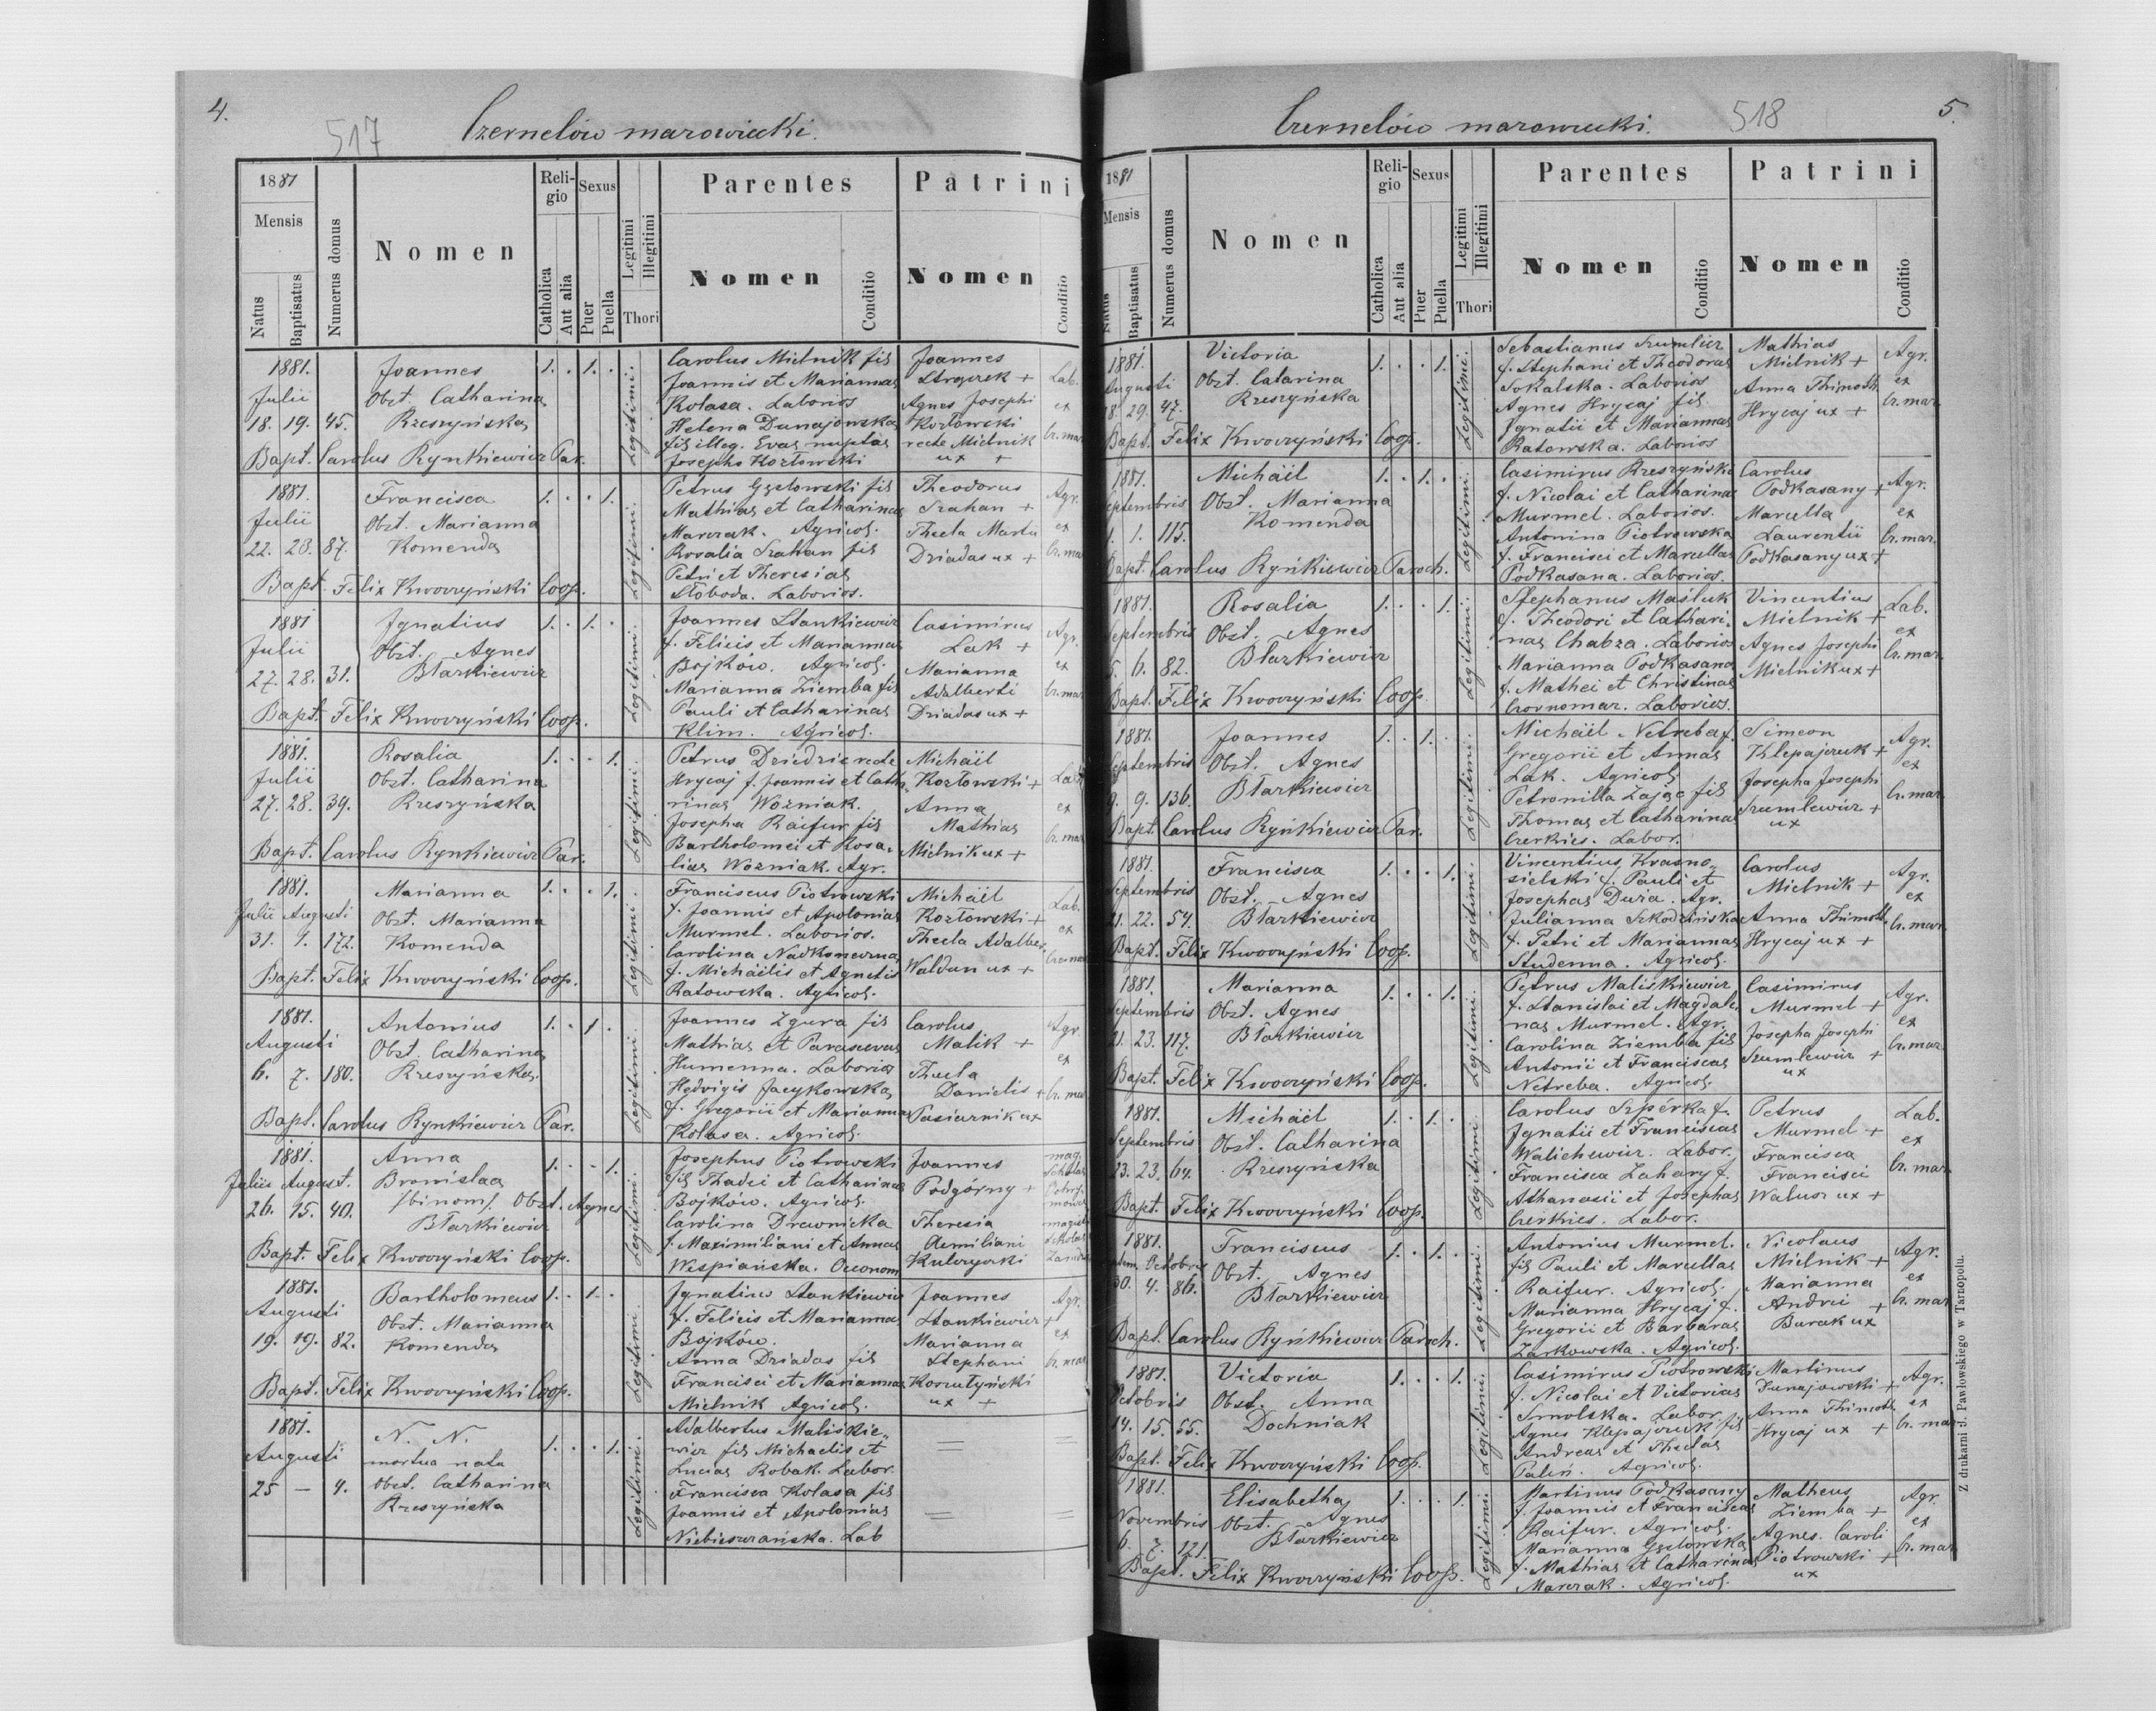 4.
517
Czernelów mazowiecki.
1881
Mensis
Natus
Baptisatus
Numerus domus
Nomen
Religio
Catholica
Aut alia
Sexus
Puer
Puella
Legitimi
Illegitimi
Thori
Parentes
Nomen
Conditio
Patrini
Nomen
Conditio
1881.
Julii
18. 19. 45.
Joannes
Obst. Catharina
Rzeszyńska
1. . 1. .
Legitimi.
Carolus Mielnik fil
Joannis et Mariannae
Kolasa. Laborios
Helena Dunajowska
fil illeg. Evae nuptae
Josepho Kozłowski
Joannes
+
Agnes Josephi
Kozłowski
recte Mielnik
ux +
Lab.
ex
Cr. maz
Bapt. Carolus Rynkiewicz Par.
1881.
Julii
22. 23. 87.
Francisca
Obst. Marianna
Komenda
1. . . 1.
Legitimi.
Petrus Gzelowski fil
Mathiae et Catharinae
Marczak. Agricol.
Rosalia Szahan fil
Petri et Theresiae
Słoboda. Laborios.
Theodorus
Szahan +
Thecla Martii
Driadas ux +
Agr.
ex
Cr. maz
Bapt. Felix Kwoczyński Coop.
1881
Julii
27. 28. 31.
Ignatius
Obst. Agnes
Błazkiewicz
1. . 1. .
Legitimi.
Joannes Stankiewicz
f. Felicis et Mariannae
Bojków. Agricol.
Marianna Ziemba fil
Pauli et Catharinae
Klim. Agricol.
Casimirus
Lak +
Marianna
Adalberti
Driadas ux +
Agr.
ex
Cr. maz
Bapt. Felix Kwoczyński Coop.
1881.
Julii
27. 28. 39.
Rosalia
Obst. Catharina
Rzeszyńska
1. . . 1.
Legitimi.
Petrus Dziedzic recte
Hrycaj f. Joannis et Catha
rinae Wozniak.
Josepha Raifur fil
Bartholomei et Rosa-
liae Wozniak. Agr.
Michaël
Kozłowski +
Anna
Mathiae
Mielnik ux +
Lab
ex
Cr. maz
Bapt. Carolus Rynkiewicz Par.
1881.
Julii Augusti
31. 1. 172.
Marianna
Obst. Marianna
Komenda
1. . . 1.
Legitimi.
Franciscus Piotrowski
f. Joannis et Apoloniae
Murmel. Laborios.
Carolina Nadkonewna
f. Michäelis et Agnetis
Ratowska. Agricol.
Michäel
Kozłowski +
Thecla Adalber.
Waldun ux +
Lab.
ex
Cr. maz
Bapt. Felix Kwoczyński Coop.
1881.
Augusti
6. 7. 180.
Antonius
Obst. Catharina
Rzeszyńska.
1. . 1 .
Legitimi.
Joannes Zgura fil
Mathiae et Parascevae
Humenna. Laborios
Hedvigis Jacykowska
f. Gregorii et Mariannae
Kolasa. Agricol.
Carolus
Malik +
Thecla
Danielis +
Pasiecznik ux
Agr.
ex
Cr. maz
Bapt. Carolus Rynkiewicz Par.
1881.
Julii August.
26. 15. 40.
Anna
Bronislaa
/binom/. Obst. Agnes
Błazkiewicz
1. . . 1.
Legitimi.
Josephus Piotrowski
fil Thadei et Catharinae
Bojków. Agricol.
Carolina Drewnicka
f. Maximiliani et Annae
Wespiańska. Oeconom
Joannes
Podgórny +
Theresia
Aemiliani
Kulczycki
mag.
Bapt. Felix Kwoczyński Coop.
1881.
Augusti
19. 19. 82.
Bartholomeus
Obst. Marianna
Komenda
1. . 1. .
Legitimi.
Ignatius Stankiewicz
f. Felicis et Mariannae
Bojków.
Anna Driadas fil
Francisci et Mariannae
Mielnik Agricol.
Joannes
Stankiewicz +
Marianna
Stephani
Koszutyński
ux +
Agr.
ex
Cr. maz
Bapt. Felix Kwoczyński Coop.
1881.
Augusti
25 — 4.
N. N.
mortua nata
Obst. Catharina
Rzeszyńska
1. . . 1.
Legitimi.
Adalbertus Maliskie-
wicz fil Michaelis et
Luciae Robak. Labor.
Francisca Kolasa fil
Joannis et Apoloniae
Niebieszczańska. Lab
5.
518
Czernelów mazowiecki.
1881
Mensis
Natus
Baptisatus
Numerus domus
Nomen
Religio
Catholica
Aut alia
Sexus
Puer
Puella
Legitimi
Illegitimi
Thori
Parentes
Nomen
Conditio
Patrini
Nomen
Conditio
1881.
Augusti
18. 29. 47.
Victoria
Obst. Catarina
Rzeszyńska
1. . . 1.
Legitimi.
Sebastianus Szumlicz
f. Stephani et Theodorae
Sokalska. Laborios
Agnes Hrycaj fil
Ignatii et Mariannae
Ratowska. Laborios
Mathias
Mielnik +
Anna Thimoth.
Hrycaj ux +
Agr.
ex
Cr. maz.
Bapt. Felix Kwoczyński Coop.
1881.
Septembris
1. 1. 115.
Michäel
Obst. Marianna
Komenda
1. . 1. .
Legitimi.
Casimirus Rzeszyński
f. Nicolai et Catharinae
Murmel. Laborios.
Antonina Piotrowska
f. Francisci et Marcellae
Podkasana. Laborios.
Carolus
Podkasany +
Marcella
Laurentii
Podkasany ux +
Agr.
ex
Cr. maz.
Bapt. Carolus Ryńkiewicz Paroch.
1881.
Septembris
5. 6. 82.
Rosalia
Obst. Agnes
Błazkiewicz
1. . . 1.
Legitimi.
Stephanus Maśluk
f. Theodori et Cathari-
nae Chabza. Laborios
Marianna Podkasana
f. Mathei et Christinae
Czornomaz. Laborios.
Vincentius
Mielnik +
Agnes Josephi
Mielnik ux +
Lab.
ex
Cr. maz.
Bapt. Felix Kwoczyński Coop.
1881.
Septembris
9. 9. 136.
Joannes
Obst. Agnes
Błazkiewicz
1. . 1. .
Legitimi.
Michäel Netreba f.
Gregorii et Annae
Lak. Agricol.
Petronilla Zając fil
Thomae et Catharinae
Czerkies. Labor.
Simeon
Klepajczuk +
Josepha Josephi
Szumlewicz +
ux
Agr.
ex
Cr. maz.
Bapt. Carolus Ryńkiewicz Par.
1881.
Septembris
21. 22. 54.
Francisca
Obst. Agnes
Błazkiewicz
1. . . 1.
Legitimi.
Vincentius Krasno-
sielski f. Pauli et
Josephae Duża. Agr.
Julianna Szkodzińska
f. Petri et Mariannae
Studenna. Agricol.
Carolus
Mielnik +
Anna Thimoth.
Hrycaj ux +
Agr.
ex
Cr. maz.
Bapt. Felix Kwoczyński Coop.
1881.
Septembris
21. 23. 117.
Marianna
Obst. Agnes
Błazkiewicz
1. . . 1.
Legitimi.
Petrus Maliskiewicz
f. Stanislai et Magdale-
nae Murmel. Agr.
Carolina Ziemba fil
Antonii et Franciscae
Netreba. Agricol.
Casimirus
Murmel +
Josepha Josephi
Szumlewicz +
ux
Agr.
ex
Cr. maz.
Bapt. Felix Kwoczyński Coop.
1881.
Septembris
23. 23. 64.
Michäel
Obst. Catharina
Rzeszyńska
1. . 1. .
Legitimi.
Carolus Szpérka f.
Ignatii et Franciscae
Walichewicz. Labor.
Francisca Zahary f.
Athanasii et Josephae
Czerkies. Labor.
Petrus
Murmel +
Francisca
Francisci
Walusz ux +
Lab.
ex
Cr. maz.
Bapt. Felix Kwoczyński Coop.
1881.
Septem. Octobris
30. 4. 86.
Franciscus
Obst. Agnes
Błazkiewicz
1. . 1. .
Legitimi.
Antonius Murmel.
fil Pauli et Marcellae
Raifur. Agricol.
Marianna Hrycaj f.
Gregorii et Barbarae
Żarkowska. Agricol.
Nicolaus
Mielnik +
Marianna
Andrei +
Burak ux
Agr.
ex
Cr. maz
Bapt. Carolus Ryńkiewicz Paroch.
1881.
Octobris
14. 15. 55.
Victoria
Obst. Anna
Dochniak
1. . . 1.
Legitimi.
Casimirus Piotrowski
f. Nicolai et Victoriae
Smolska. Labor
Agnes Klepajczuk fil
Andreae et Theclae
Paleń. Agricol.
Martinus
Dunajowski +
Anna Thimoth.
Hrycaj ux +
Agr.
ex
Cr. maz
Bapt. Felix Kwoczyński Coop.
1881.
Novembris
6. 7. 121.
Elisabetha
Obst. Agnes
Błazkiewicz
1. . . 1.
Legitimi.
Martinus Podkasany
f. Joannis et Franciscae
Raifur. Agricol.
Marianna Gzelowska
f. Mathiae et Catharinae
Marczak. Agricol.
Matheus
Ziemba +
Agnes Caroli
Piotrowski +
ux
Agr.
ex
Cr. maz
Bapt. Felix Kwoczyński Coop.
Z drukarni J. Pawłowskiego w Tarnopolu.